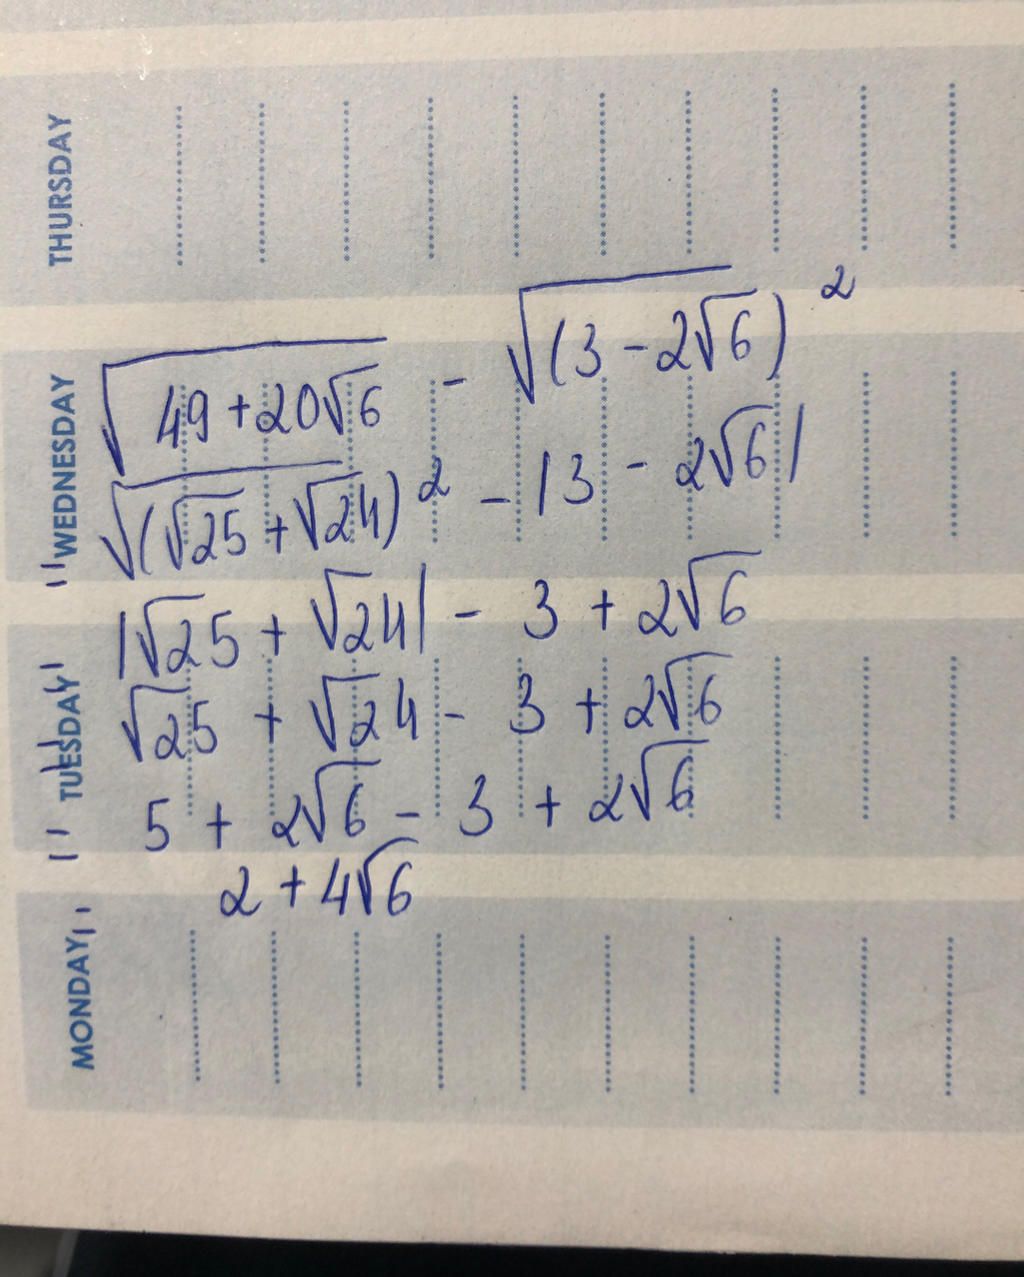 THURSDAY
WEDNESDAY
TUESDAY
MONDAY
√(49+20√6) - √((3-2√6)²)
√((√25+√24)²) - |3 - 2√6|
|√25 + √24| - 3 + 2√6
√25 + √24 - 3 + 2√6
5 + 2√6 - 3 + 2√6
2+4√6